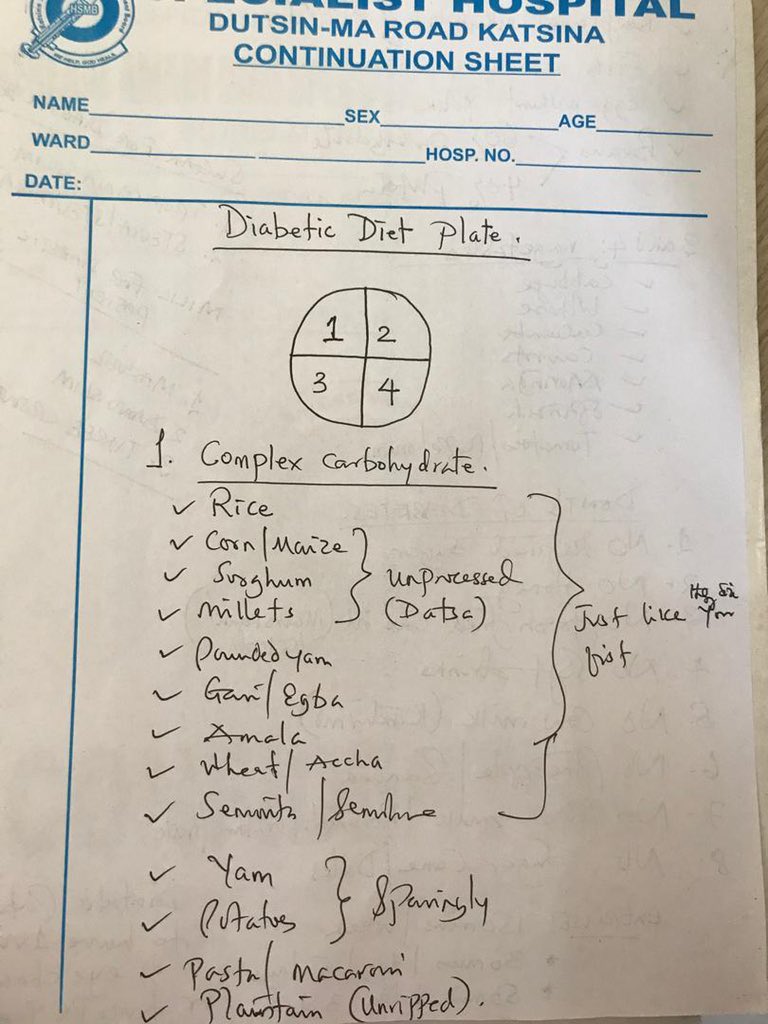 SPECIALIST HOSPITAL
DUTSIN-MA ROAD KATSINA
CONTINUATION SHEET
HSMB
NAME SEX AGE
WARD HOSP. NO.
DATE:
Diabetic Diet Plate.
1 2
3 4
1. Complex carbohydrate.
✓ Rice
✓ Corn/Maize
✓ Sorghum } unprocessed
✓ Millets (Datsa)
Just like You
fist
✓ Pounded yam
✓ Gari/Egba
✓ Amala
✓ Wheat/Accha
✓ Semovita/
✓ Yam
✓ Potatoes } Sparingly
✓ Pasta/macaroni
✓ Plaintain (Unripped).